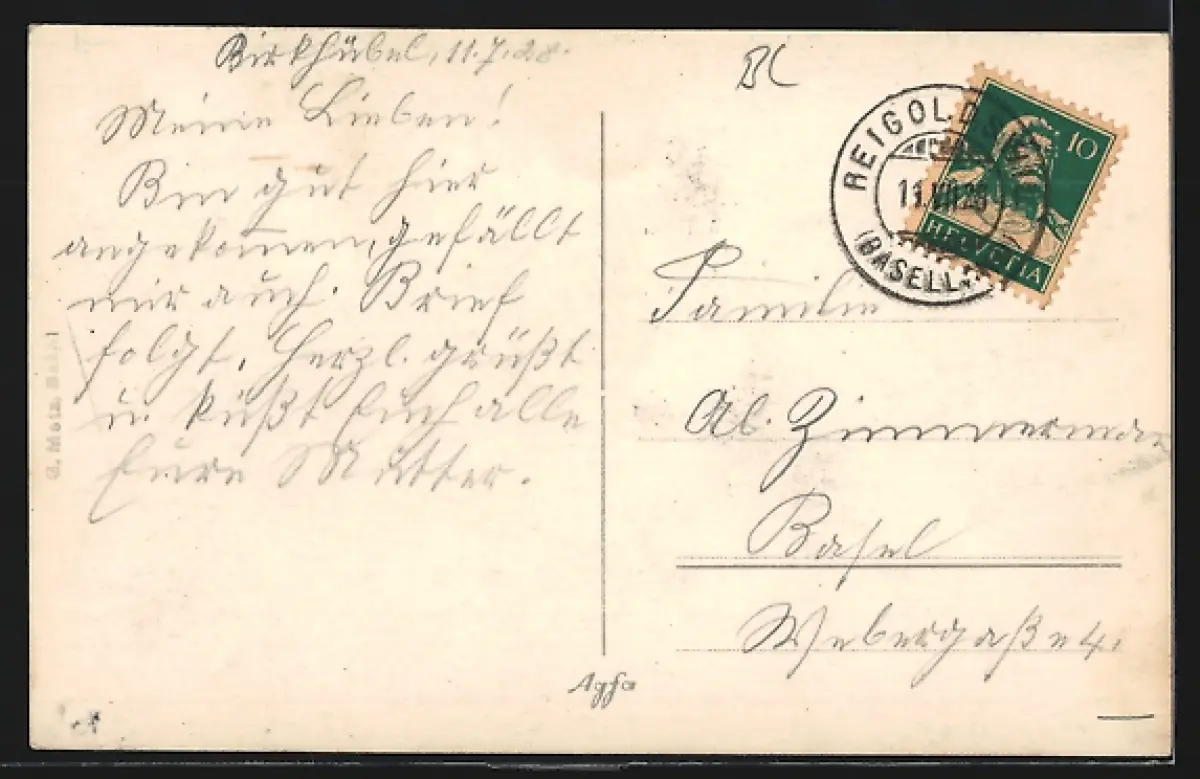 Birkhübel, 11.7.28.
Meine Lieben!
Bin gut hier
angekommen, gefällt
mir auch. Brief
folgt. Herzl. grüßt
u. küßt Euch alle
Eure Mutter.
G. Metz, Basel
BL
REIGOLDS
11.VII.28
(BASELL.
10
HELVETIA
Familie
Alb. Zimmerman
Basel
Webergaße 4.
Agfa